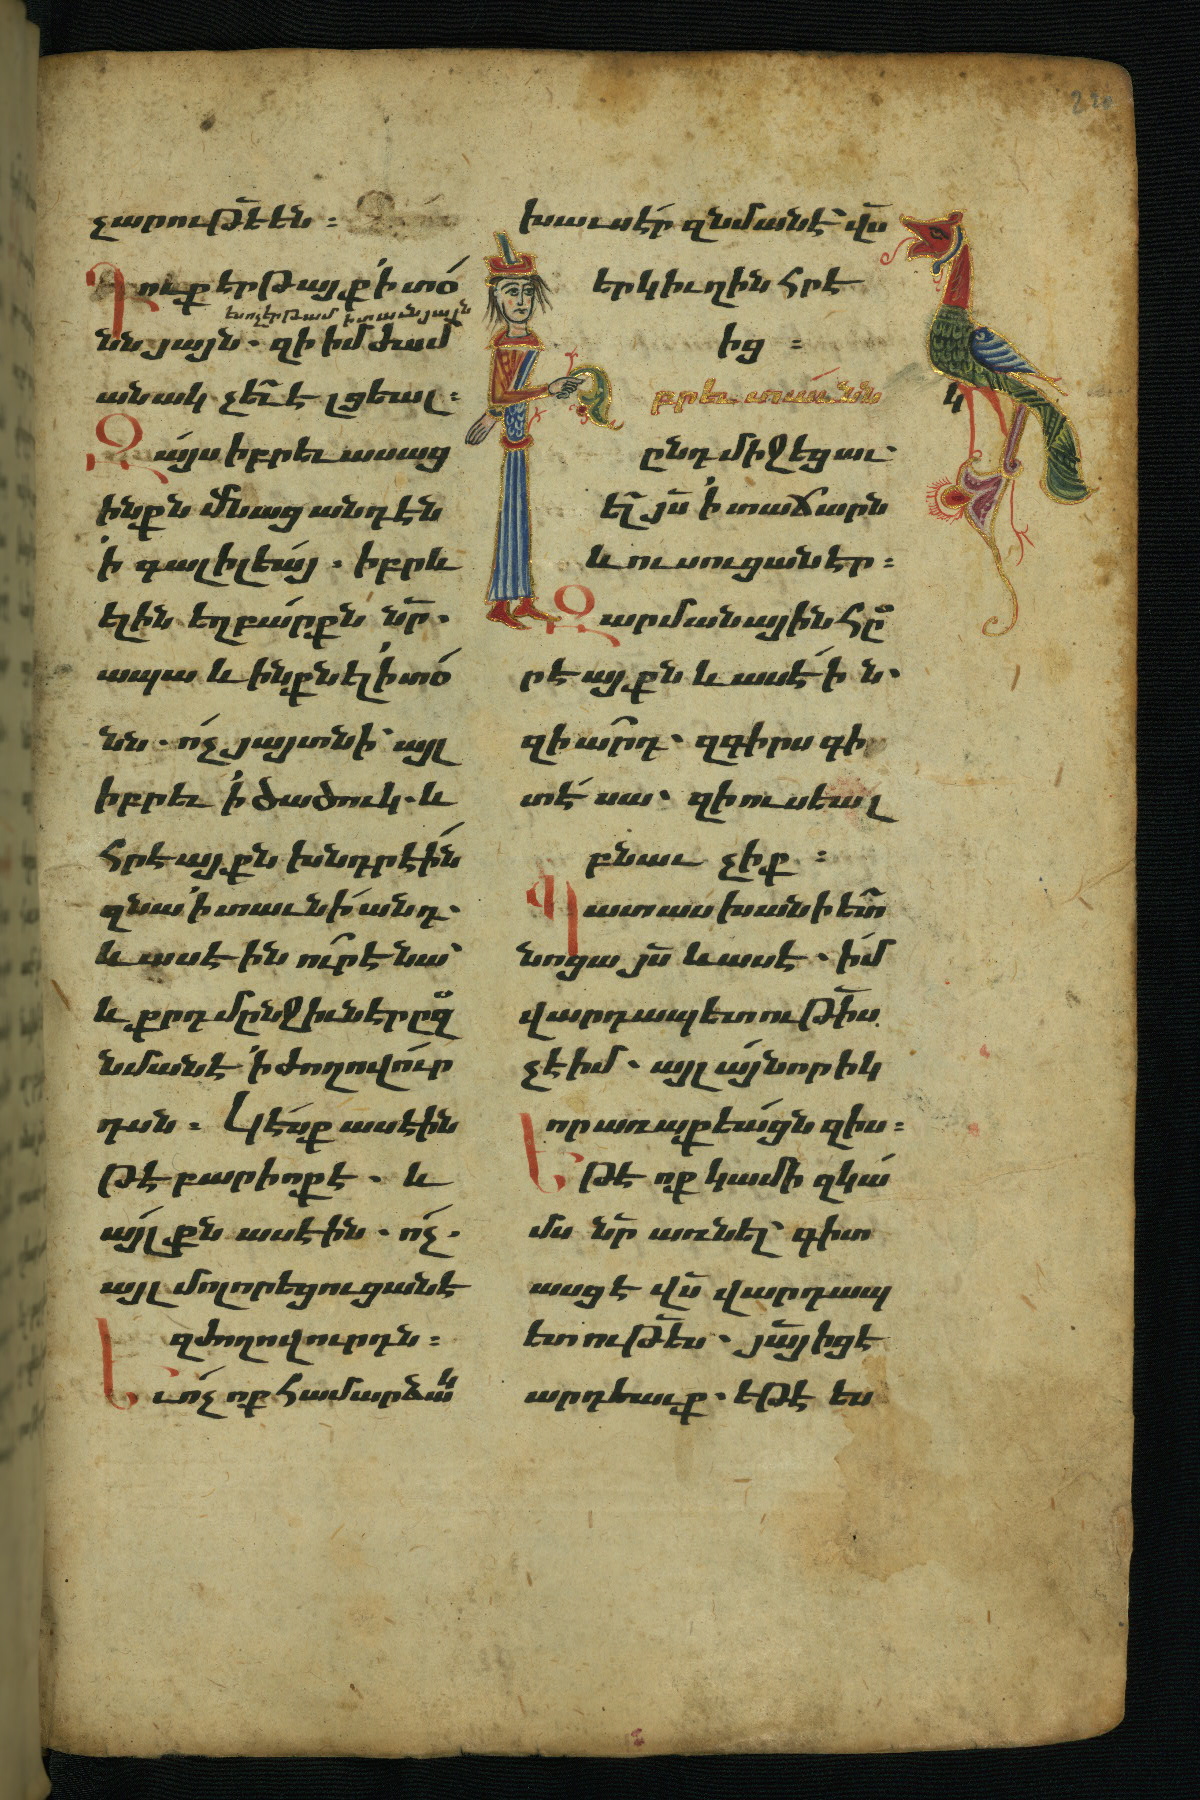 չարութեէեն :
Դուք երթայք ՚ի տօ
ես ոչ երթամ ի տաւնյայն
նն յայն . զի իմ ժամ
անակ չեւ է լցեալ :
Զայս իբրեւ ասաց
ինքն մնաց անդէն
՚ի գալիլեայ . իբրև
ելին եղբարքն նր .
ապա և ինքն ել ՚ի տօ
նն . ոչ յայտնի այլ
իբրեւ ՚ի ծածուկ . և
հրէայքն խնդրէին
զնա ՚ի տաւնի անդ .
և ասէին ուր է նա
և քրդմընջիւն էր ըզ
նմանէ ՚ի ժողովուր
դան . Կէսք ասէին
թէ բարիոք է . և
այլքն ասէին . ոչ .
այլ մոլորեցուցանէ
զժողովուրդն :
Եւ ոչ ոք համարձակ
խաւսէր զնմանէ վս
երկիւղին հրէ
ից :
բրեւ տաւնն կ
ընդ միջեցաւ
ել յս ՚ի տաճարն
և ուսուցանէր :
Զարմանային հը
րէայքն և ասէին .
զիարդ . զգիրս գի
տէ սա . զի ուսեալ
բնաւ չիք :
Պատասխանի ետ
նոցա յս և ասէ . իմ
վարդապետութիս
չէ իմ . այլ այնորիկ
որ առաքեացն զիս :
Եթէ ոք կամի զկա
մս նր առնել գիտ
ասցէ վս վարդապ
ետութես . յայ իցէ
արդեաւք . եթէ ես